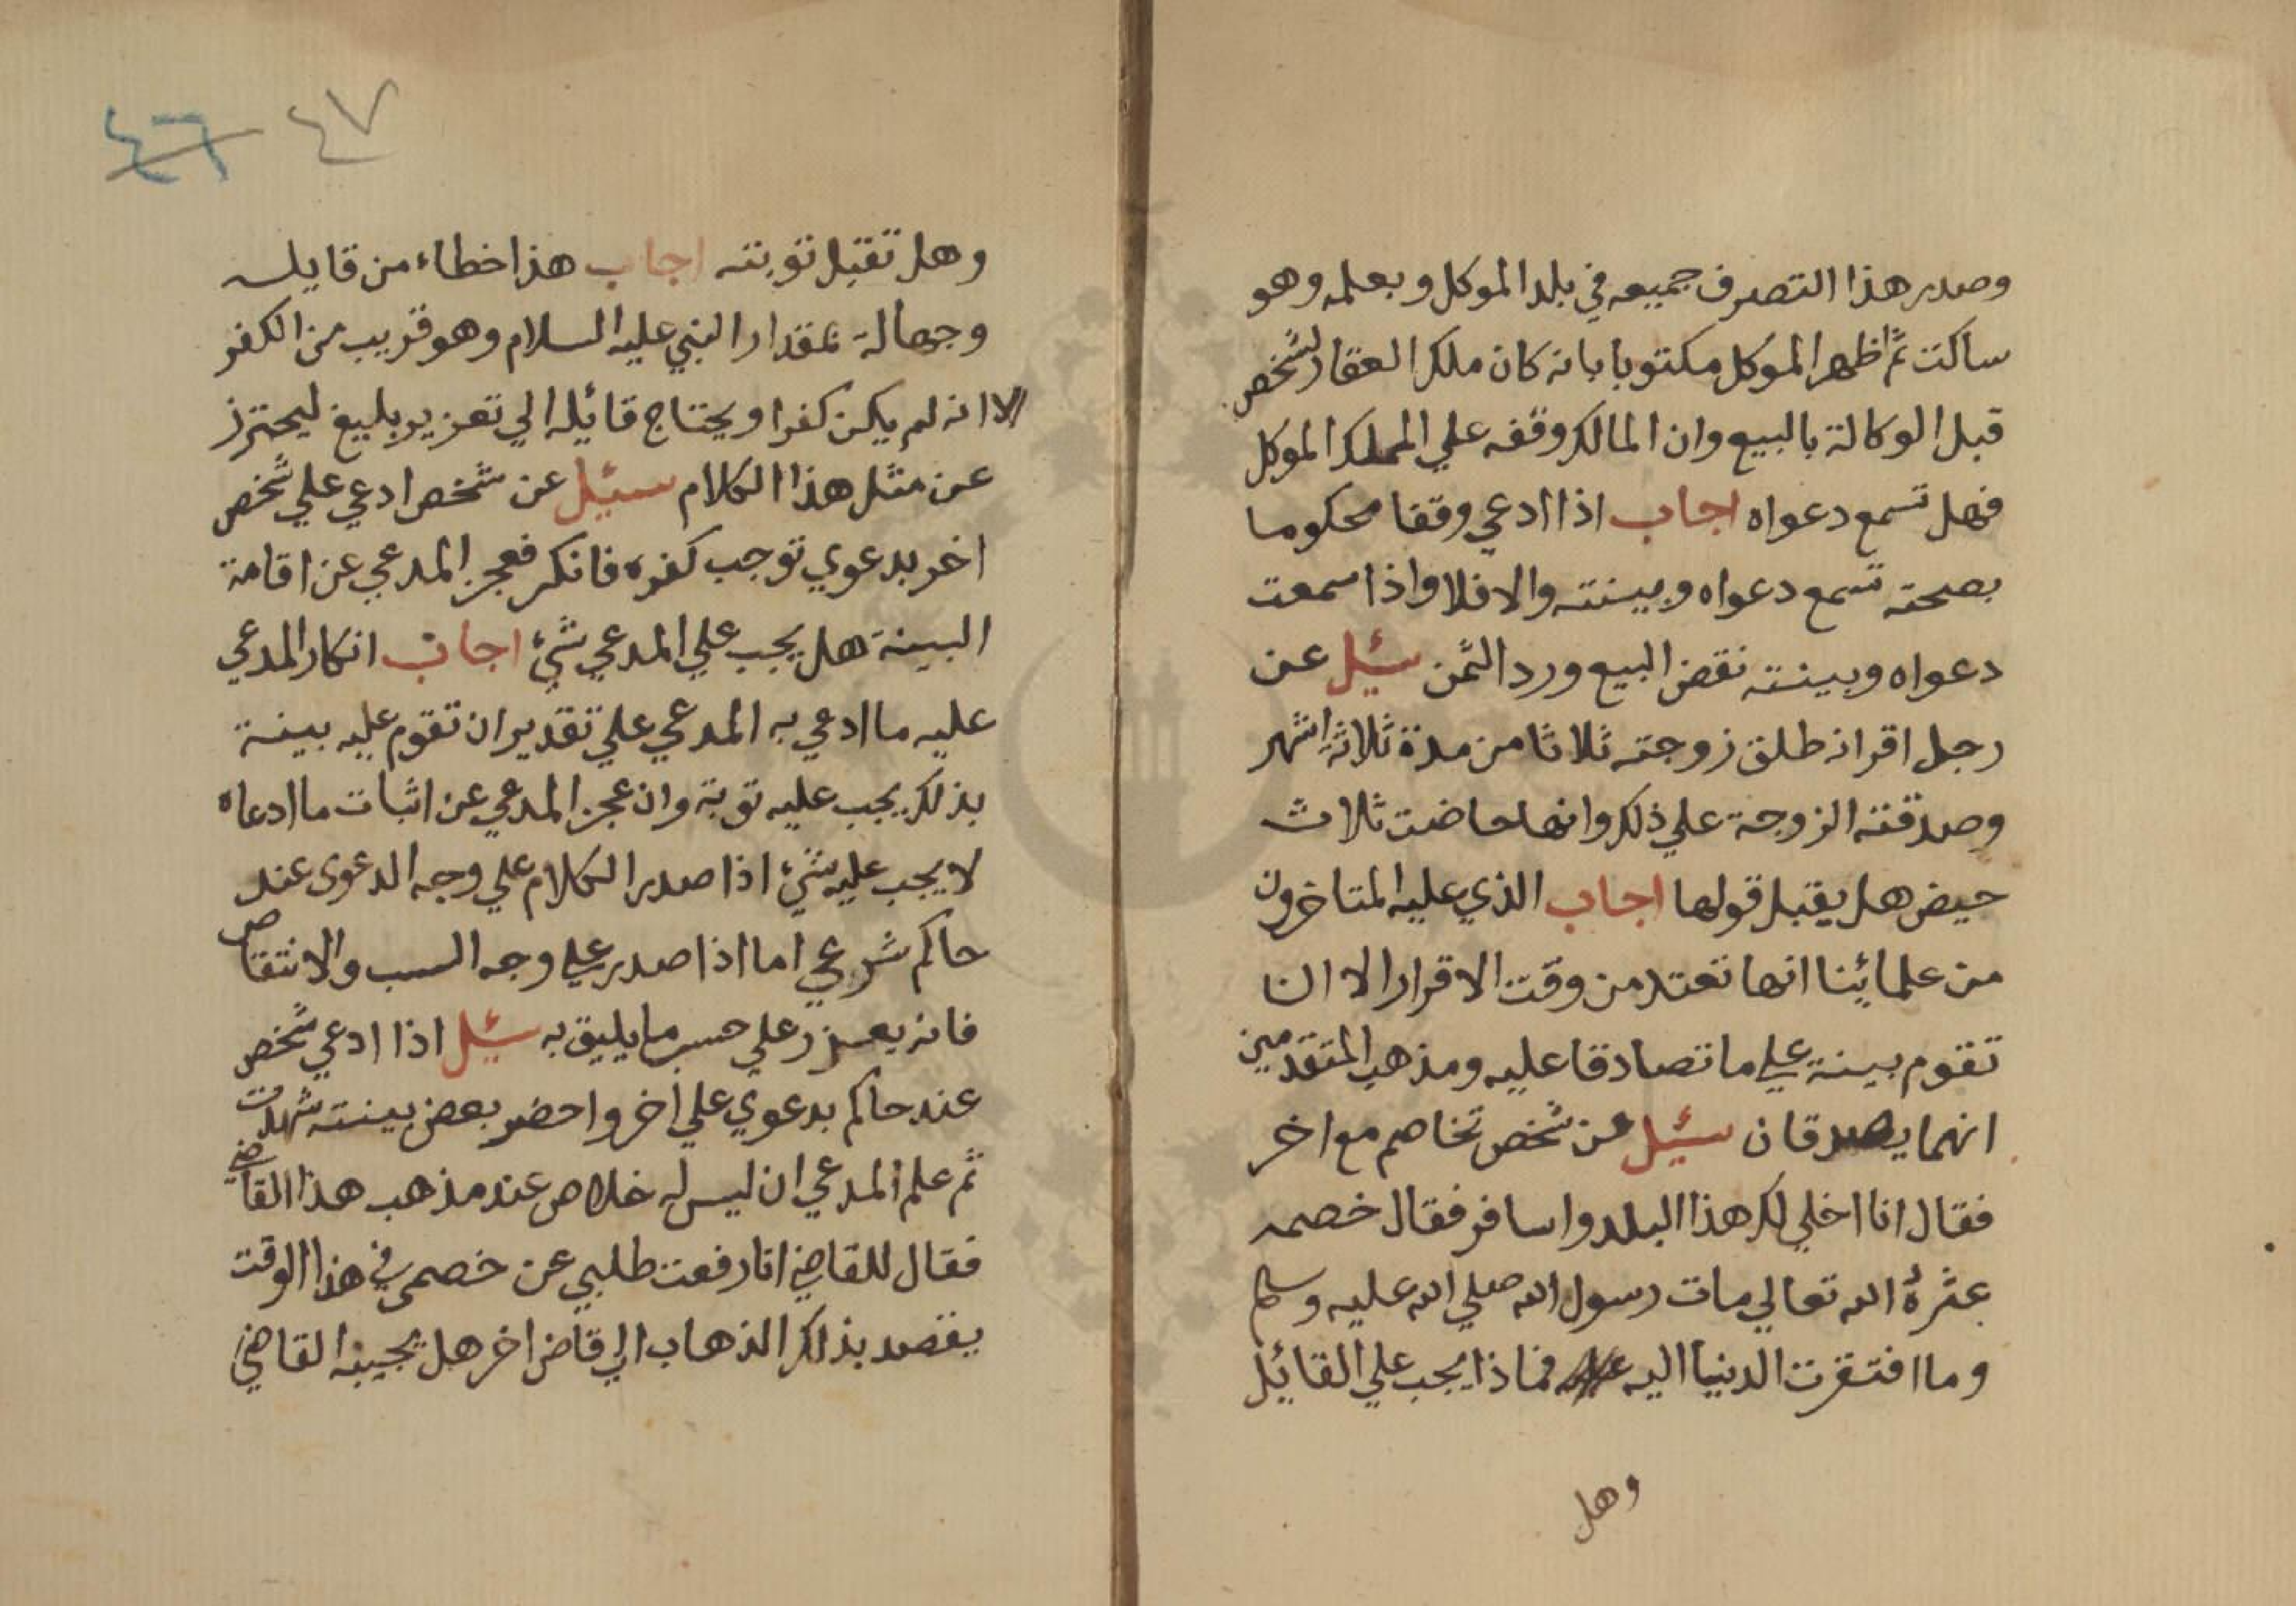 وصدر هذا التصرف جميعه في بلد الموكل وبعلمه وهو
ساكت ثم اظهر الموكل مكتوبا بانه كان ملك العقار لشخص
قبل الوكالة بالبيع وان المالك وقفه علي المملك الموكل
فهل تسمع دعواه اجاب اذا ادعي وقفا محكوما
بصحته تسمع دعواه وبينته والا فلا واذا سمعت
دعواه وبينته نقض البيع ورد الثمن سئيل عن
رجل اقر انه طلق زوجته ثلاثا من مدة ثلاثة اشهر
وصدقته الزوجة علي ذلك وانها حاضت ثلاث
حيض هل يقبل قولها اجاب الذي عليه المتاخرون
من علمائنا انها تعتد من وقت الاقرار الا ان
تقوم بينة علي ما تصادقا عليه ومذهب المتقدمين
انهما يصدقان سئيل عن شخص تخاصم مع اخر
فقال انا اخلي لك هذا البلد واسافر فقال خصمه
عثرة الله تعالي مات رسول الله صلي الله عليه وسلم
وما افتقرت الدنيا اليه فماذا يجب علي القائل
وهل
٤٧ ٤٦
وهل تقبل توبته اجاب هذا خطاء من قايله
وجهالة بمقدار النبي عليه السلام وهو قريب من الكفر
الا انه لم يكن كفرا ويحتاج قائله الي تعزير بليغ ليحترز
عن مثل هذا الكلام سئيل عن شخص ادعي علي شخص
اخر بدعوي توجب كفره فانكر فعجز المدعي عن اقامة
البينة هل يجب علي المدعي شيء اجاب انكار المدعي
عليه ما ادعي به المدعي علي تقدير ان تقوم عليه بينة
بذلك يجب عليه توبة وان عجز المدعي عن اثبات ما ادعاه
لا يجب عليه شيء اذا صدر الكلام علي وجه الدعوى عند
حاكم شرعي اما اذا صدر علي وجه السب والانتقاص
فانه يعزر علي حسب ما يليق به سئيل اذا ادعي شخص
عند حاكم بدعوي علي اخر واحضر بعض بينته شهدت
ثم علم المدعي ان ليس له خلاص عند مذهب هذا القاضي
فقال للقاضي انا رفعت طلبي عن خصمي في هذا الوقت
يقصد بذلك الذهاب الي قاض اخر هل يجيبه القاضي